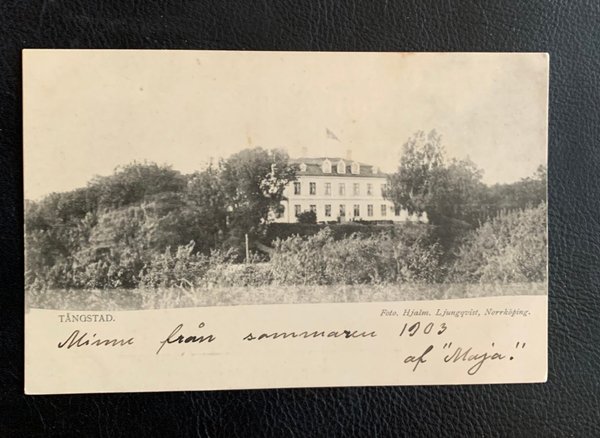 TÅNGSTAD.
Foto. Hjalm. Ljungqvist, Norrköping.
Minne från sommaren 1903
af "Maja".